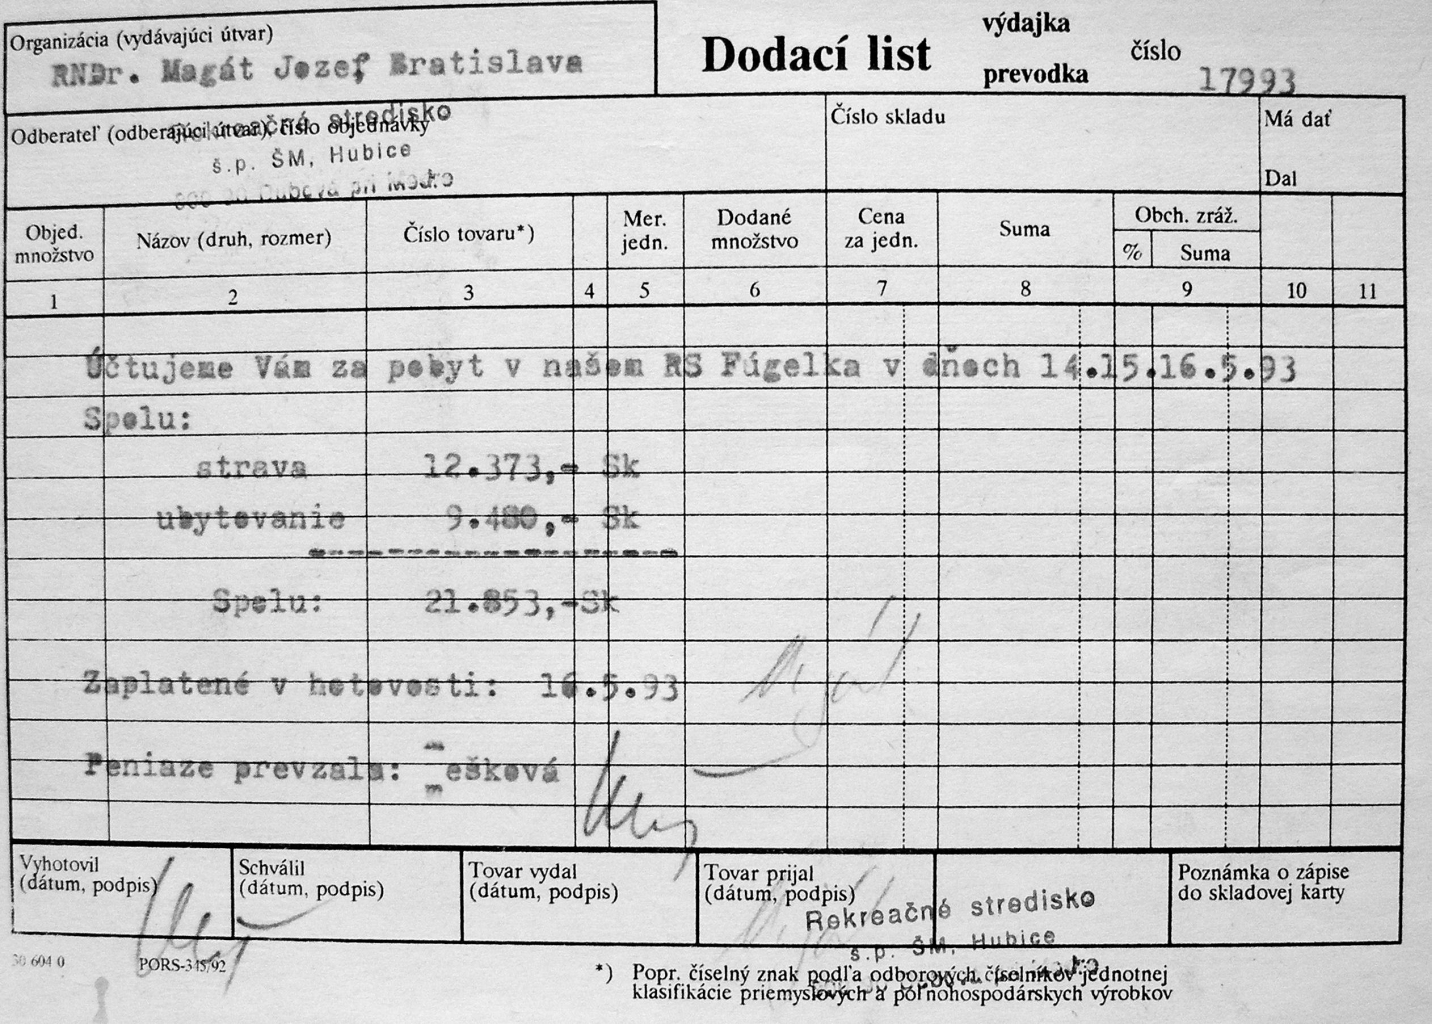 Organizácia (vydávajúci útvar)
RNDr. Magát Jozef Bratislava
Dodací list
výdajka
prevodka
číslo
17993
Odberateľ (odberajúci útvar), číslo objednávky
Rekreačné stredisko
š.p. ŠM, Hubice
900 90 Dubová pri Modre
Číslo skladu
Má dať
Dal
Objed. množstvo
Názov (druh, rozmer)
Číslo tovaru*)
Mer. jedn.
Dodané množstvo
Cena za jedn.
Suma
Obch. zráž.
% Suma
1 2 3 4 5 6 7 8 9 10 11
Účtujeme Vám za pobyt v našom RS Fúgelka v dňoch 14.15.16.5.93
Spolu:
strava 12.373,- Sk
ubytovanie 9.480,- Sk
Spolu: 21.853,-Sk
Zaplatené v hotovosti: 16.5.93
Magát
Peniaze prevzala: ešková
Vyhotovil
(dátum, podpis)
Schválil
(dátum, podpis)
Tovar vydal
(dátum, podpis)
Tovar prijal
(dátum, podpis)
Poznámka o zápise
do skladovej karty
Rekreačné stredisko
š.p. ŠM, Hubice
30 604 0
PORS-345/92
*) Popr. číselný znak podľa odborových číselníkov jednotnej
klasifikácie priemyslových a poľnohospodárskych výrobkov